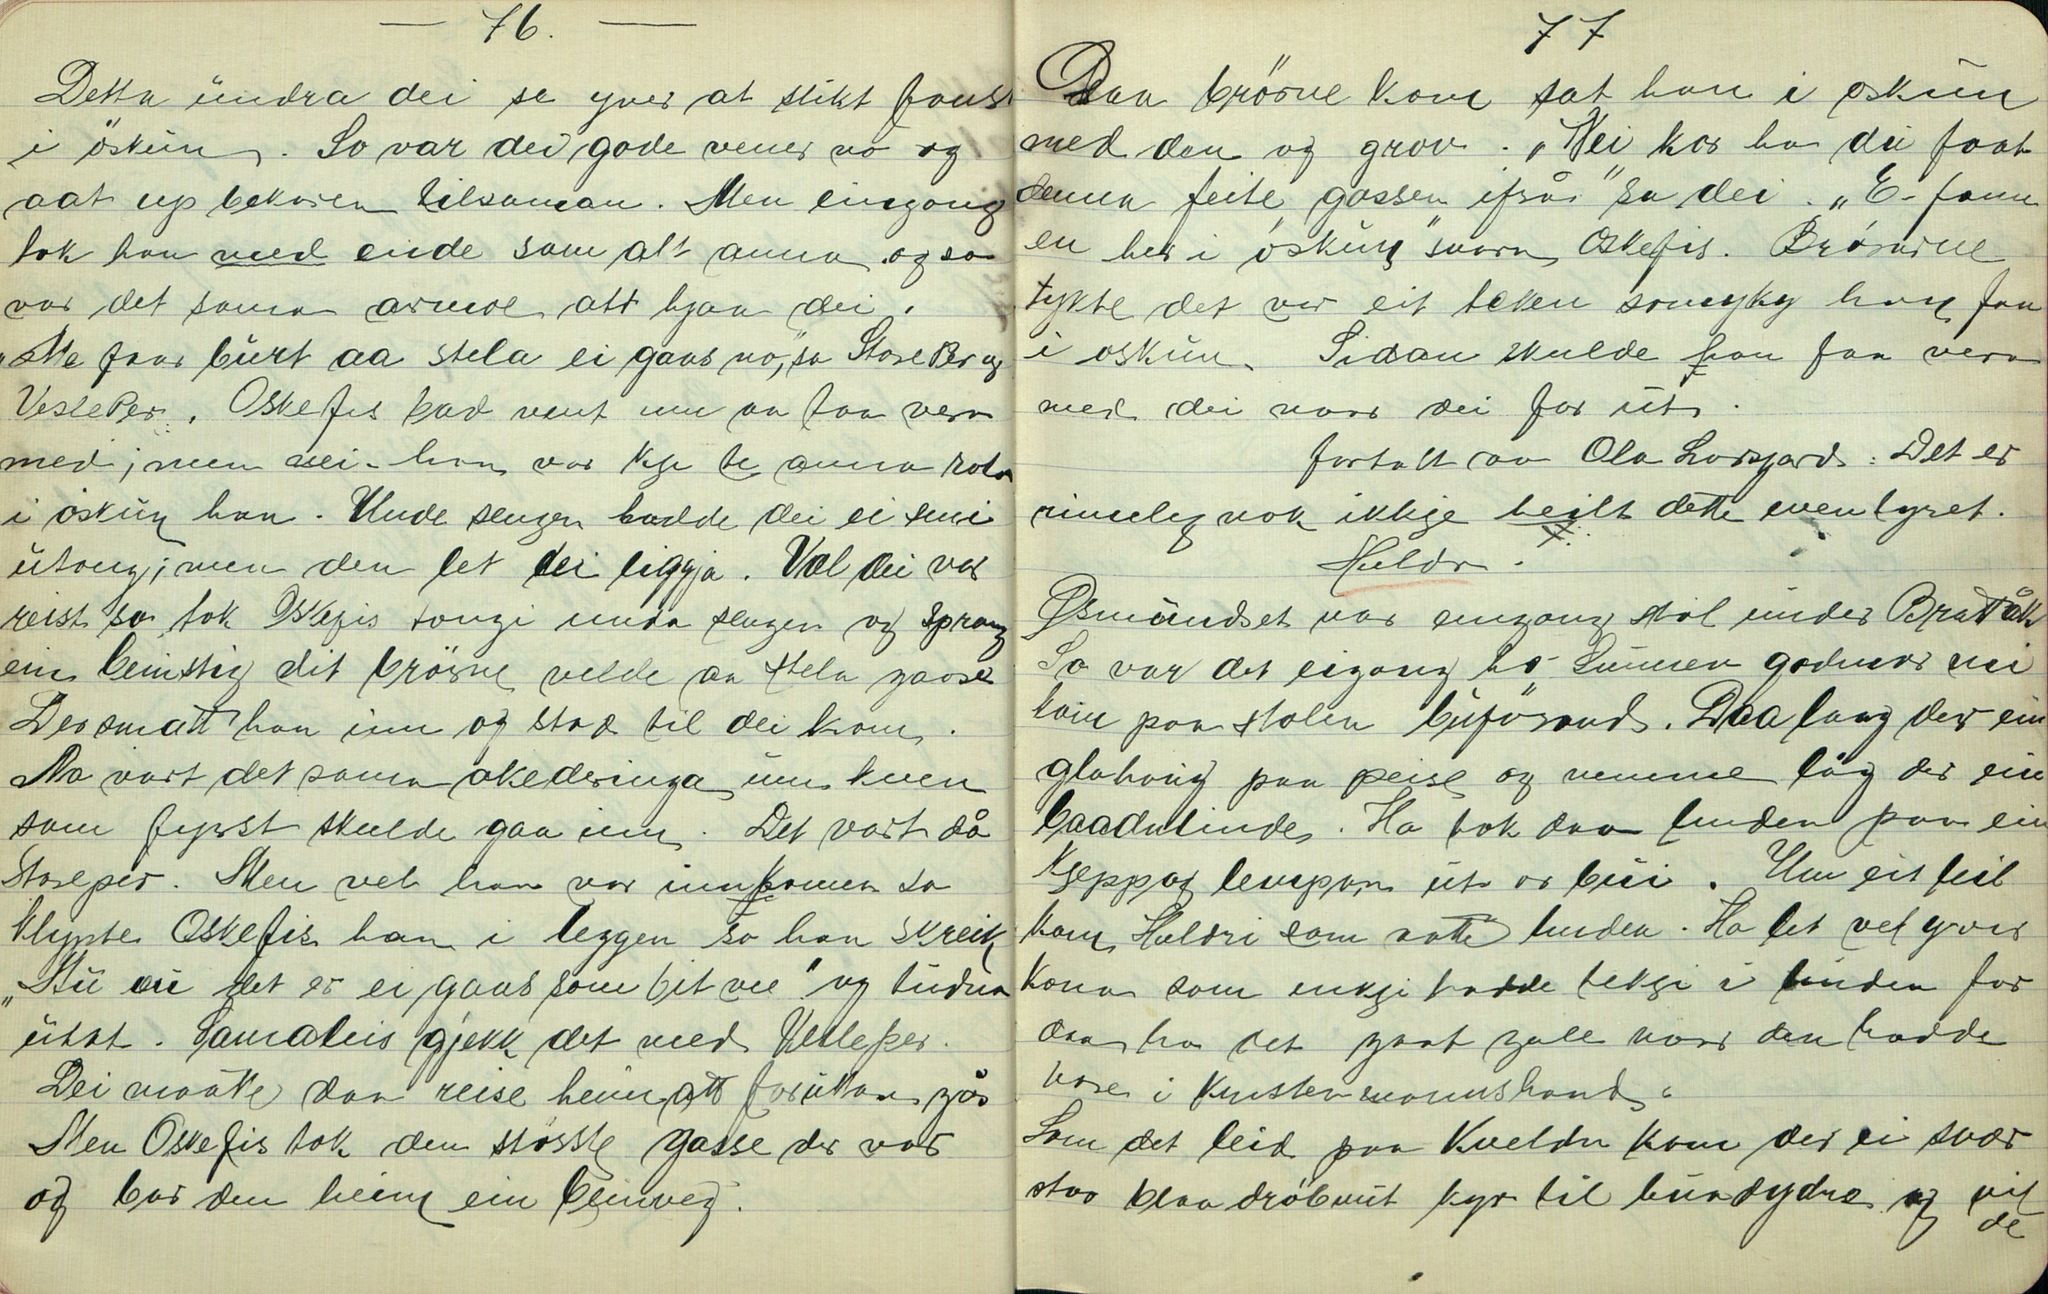 — 76. —
Detta undra dei se yver at slikt fanst
i öskun. So var dei gode vener no og
aat up bekaren tilsaman. Men eingong
tok han med ende som alt anna og so
var det sama armoe att hjaa dei.
„Me faar burt aa stela ei gaas no," sa StorePer og
VeslePer. Oskefis bad vent um aa faa vera
med; men nei – han var kje te anna rota
i öskun han. Unde sengen hadde dei ei smi
utong; men den let dei liggja. Val dei var
reist so tok Oskefis tongi unda sengen og sprang
ein beinstig dit brörne velde aa stela gaase
Der smatt han inn og stod til dei kom.
No vart det sama akederinga um kven
som fyrst skulde gaa inn. Det vart då
Storeper. Men vel han var innkomen so
klypte Oskefis han i leggen so han skreik
„Uu uu det er ei gaas som bit me" og tudna
utat. Samaleis gjekk det med Vesleper.
Dei maatte daa reise heim att forutan gås
Men Oskefis tok den störste gasse der var
og bar den heim ein beinveg.
77
Daa brörne kom sat han i oskun
med den og grov. „Nei kor ha du faat
denna feite gassen ifrå" sa dei. „E fann
en her i öskun" svara Oskefis. Brörarne
tykte det var eit teken somykj han fan
i oskun. Sidan skulde han faa vera
med dei naar dei for ut.
fortalt av Ola Lorsgard. Det er
rimeleg nok ikkje heilt dette eventyret.
Huldr.
Øsmundset var eingong stöl under Brattåk
So var det eigong ho Sunnev godmor mi
kom paa stolen buförand. Daa laag der ein
glohaug paa peise og nemme låg der ein
baadulinde. Ho tok daa linden paa ein
kjepp og lempan ut or bui. Um eit bil
kom Huldri som aatte linden. Ho let vel yver
kona som inkje hadde tekje i linden for
daa ha det gaat gale naar den hadde
vore i kristenmannshand.
Som det leid paa kvelden kom der ei svær
stor blaa dröbmit kyr til buadydre og vil
de